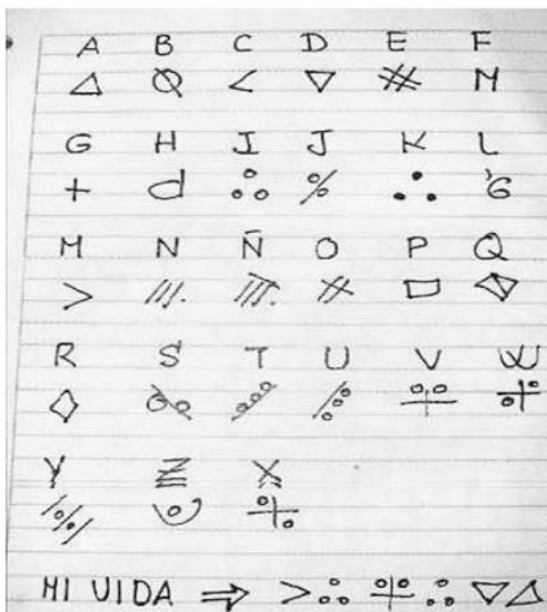 A B C D E F
G H I J K L
M N Ñ O P Q
R S T U V W
Y Z X
MI VIDA ⇒